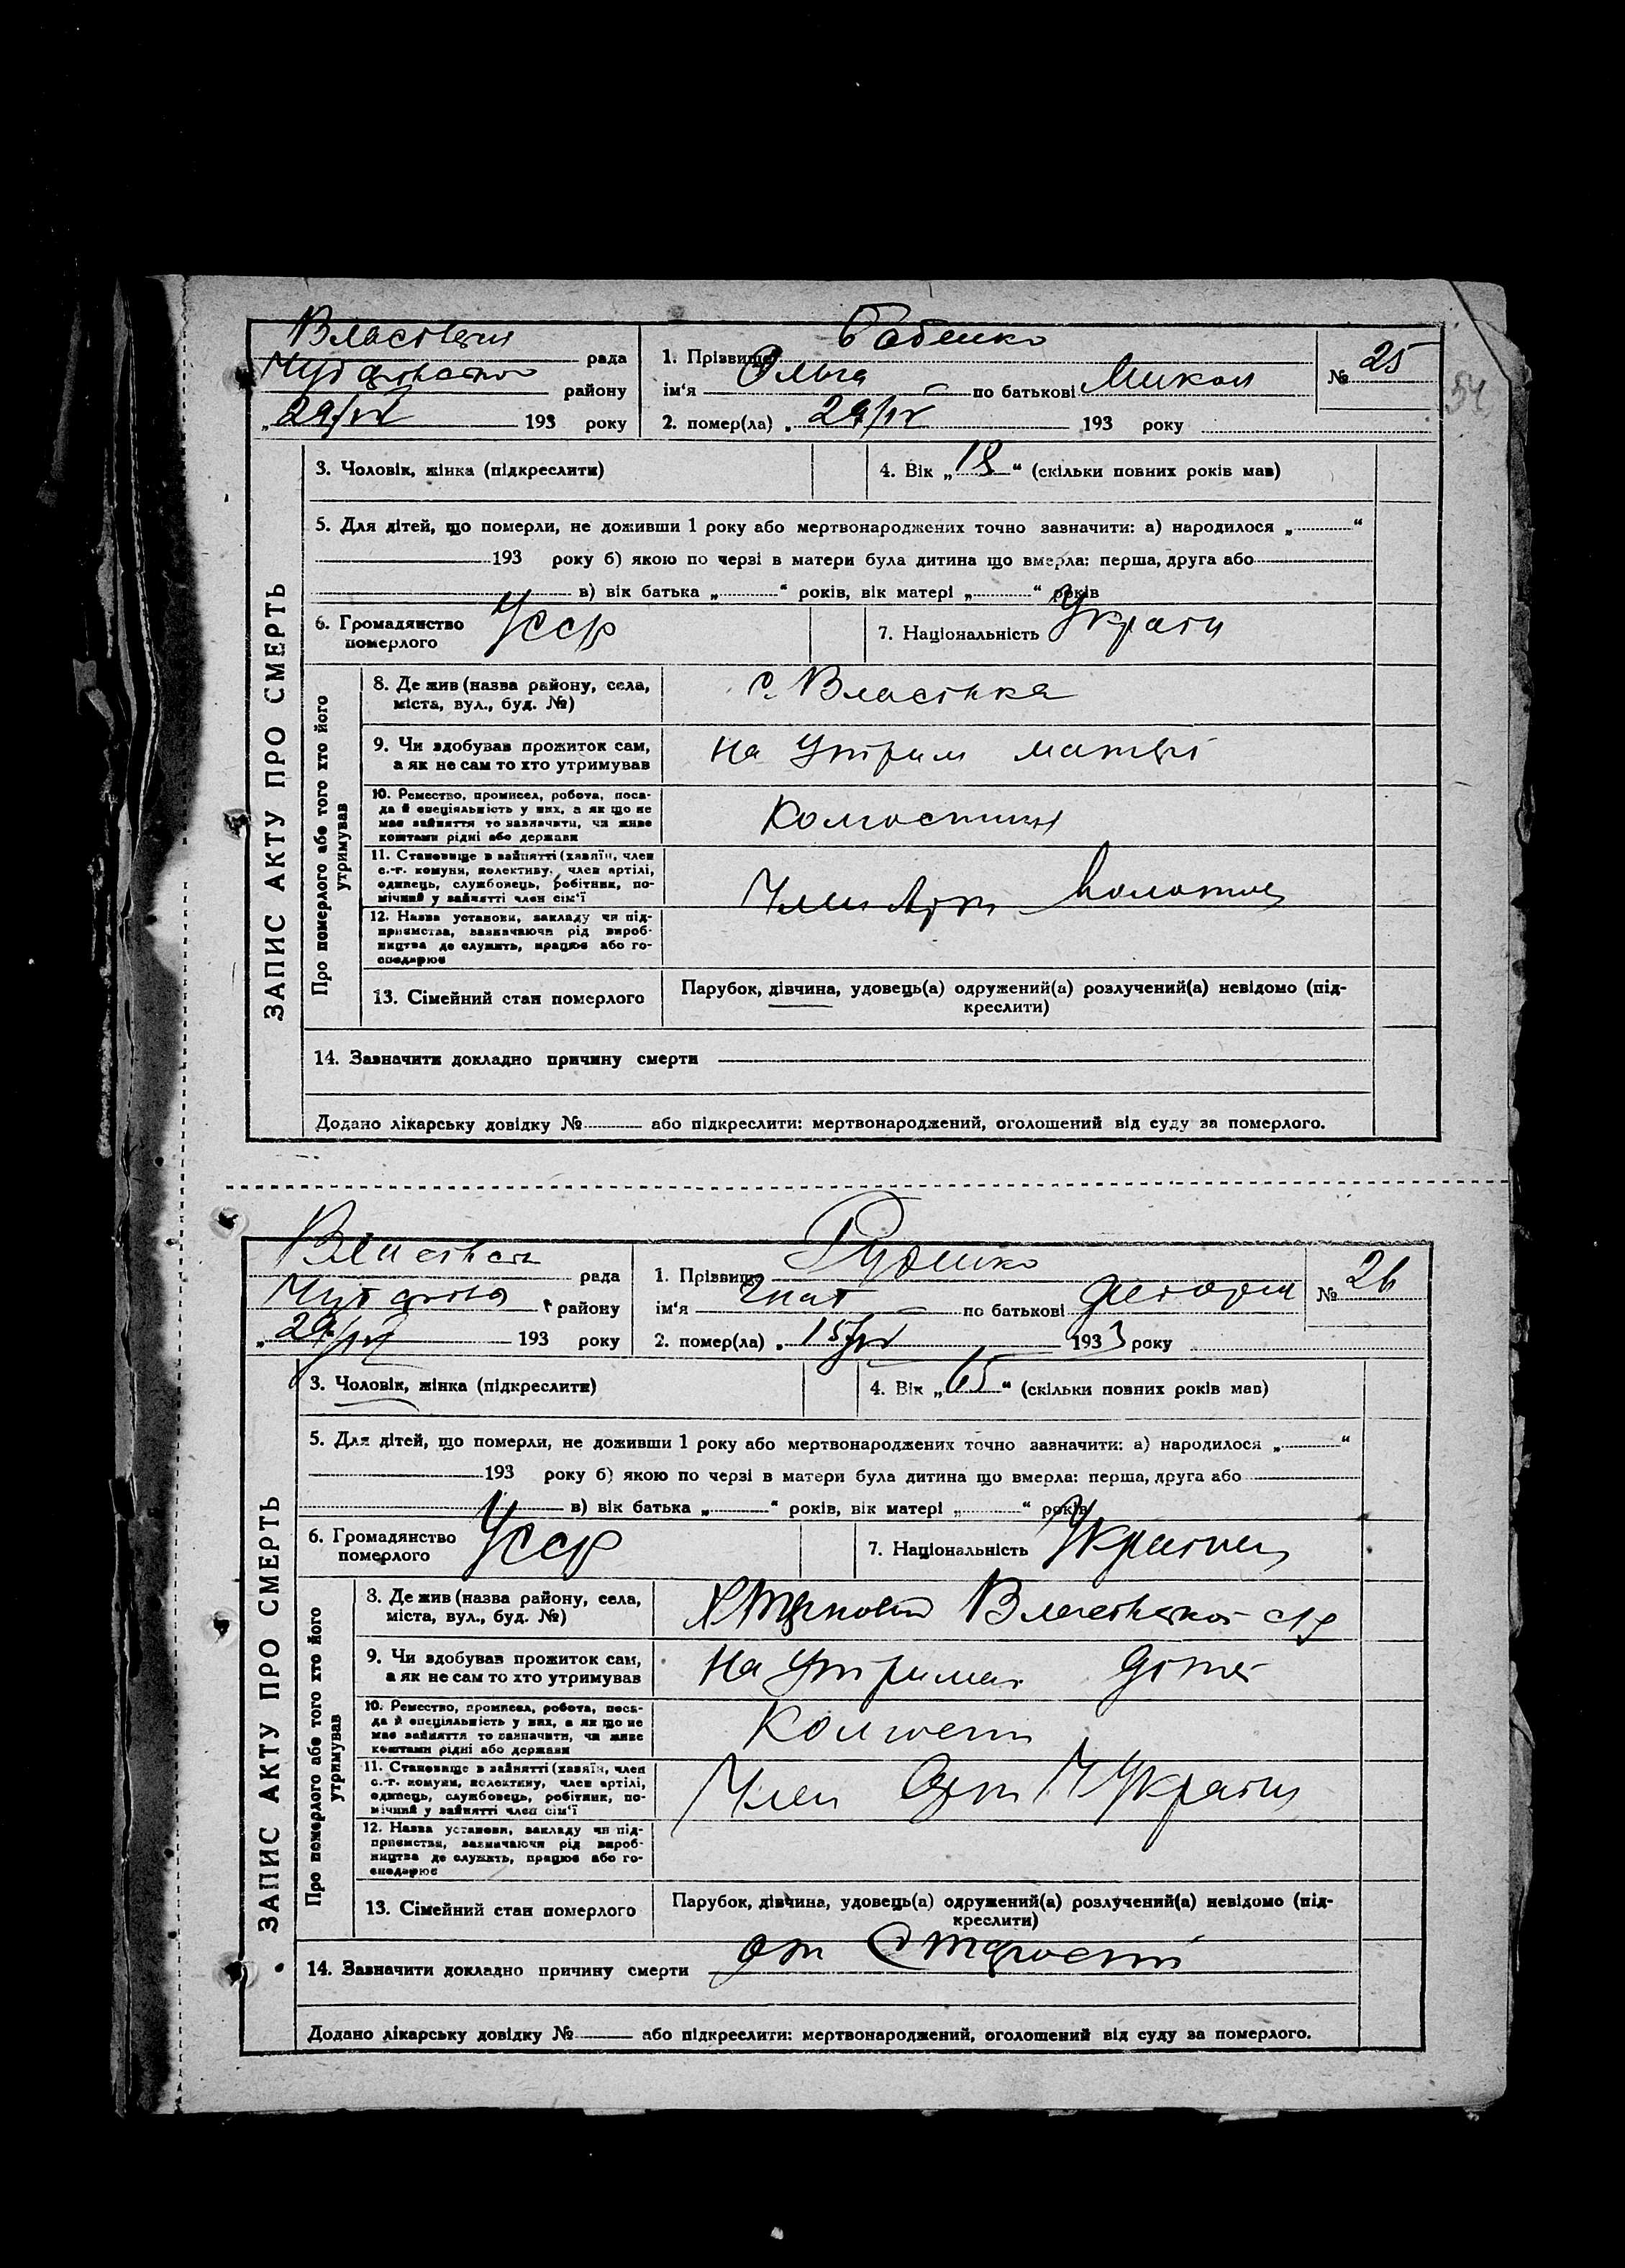 Бабенко
рада 1. Прізвище № 25
району ім'я Ольга по батькові Микол
„29/IV 193 року 2. помер(ла) „29/IV 193 року
54
ЗАПИС АКТУ ПРО СМЕРТЬ
3. Чоловік, жінка (підкреслити) 4. Вік „18“ (скільки повних років мав)
5. Для дітей, що померли, не доживши 1 року або мертвонароджених точно зазначити: а) народилося „ “
193 року б) якою по черзі в матери була дитина що вмерла: перша, друга або
в) вік батька „ “ років, вік матері „ “ років
6. Громадянство померлого УССР 7. Національність Україн
Про померлого або того хто його утримував
8. Де жив (назва району, села,
міста, вул., буд. №)
с. Власівка
9. Чи здобував прожиток сам,
а як не сам то хто утримував
на утрим матері
10. Ремество, промисел, робота, поса-
да й спеціяльність у них, а як що не
має зайняття то зазначити, чи живе
коштами рідні або держави
11. Становище в зайнятті (хазяїн, член
с.-г. комуни, колективу, член артілі,
одинець, службовець, робітник, по-
мічний у зайнятті член сім'ї
Член Арт
12. Назва установи, закладу чи під-
приємства, зазначаючи рід вироб-
ництва де служить, працює або го-
сподарює
13. Сімейний стан померлого Парубок, дівчина, удовець(а) одружений(а) розлучений(а) невідомо (під-
креслити)
14. Зазначити докладно причину смерти
Додано лікарську довідку № або підкреслити: мертвонароджений, оголошений від суду за померлого.
Руденко
рада 1. Прізвище № 26
району ім'я Гнат по батькові
„29/IV 193 року 2. помер(ла) „15/IV 1933 року
ЗАПИС АКТУ ПРО СМЕРТЬ
3. Чоловік, жінка (підкреслити) 4. Вік „65“ (скільки повних років мав)
5. Для дітей, що померли, не доживши 1 року або мертвонароджених точно зазначити: а) народилося „ “
193 року б) якою по черзі в матери була дитина що вмерла: перша, друга або
в) вік батька „ “ років, вік матері „ “ років
6. Громадянство померлого УССР 7. Національність Українец
Про померлого або того хто його утримував
8. Де жив (назва району, села,
міста, вул., буд. №)
9. Чи здобував прожиток сам,
а як не сам то хто утримував
На утриман дітей
10. Ремество, промисел, робота, поса-
да й спеціяльність у них, а як що не
має зайняття то зазначити, чи живе
коштами рідні або держави
Колгосп
11. Становище в зайнятті (хазяїн, член
с.-г. комуни, колективу, член артілі,
одинець, службовець, робітник, по-
мічний у зайнятті член сім'ї
Член Арт
12. Назва установи, закладу чи під-
приємства, зазначаючи рід вироб-
ництва де служить, працює або го-
сподарює
13. Сімейний стан померлого Парубок, дівчина, удовець(а) одружений(а) розлучений(а) невідомо (під-
креслити)
14. Зазначити докладно причину смерти от Старості
Додано лікарську довідку № або підкреслити: мертвонароджений, оголошений від суду за померлого.